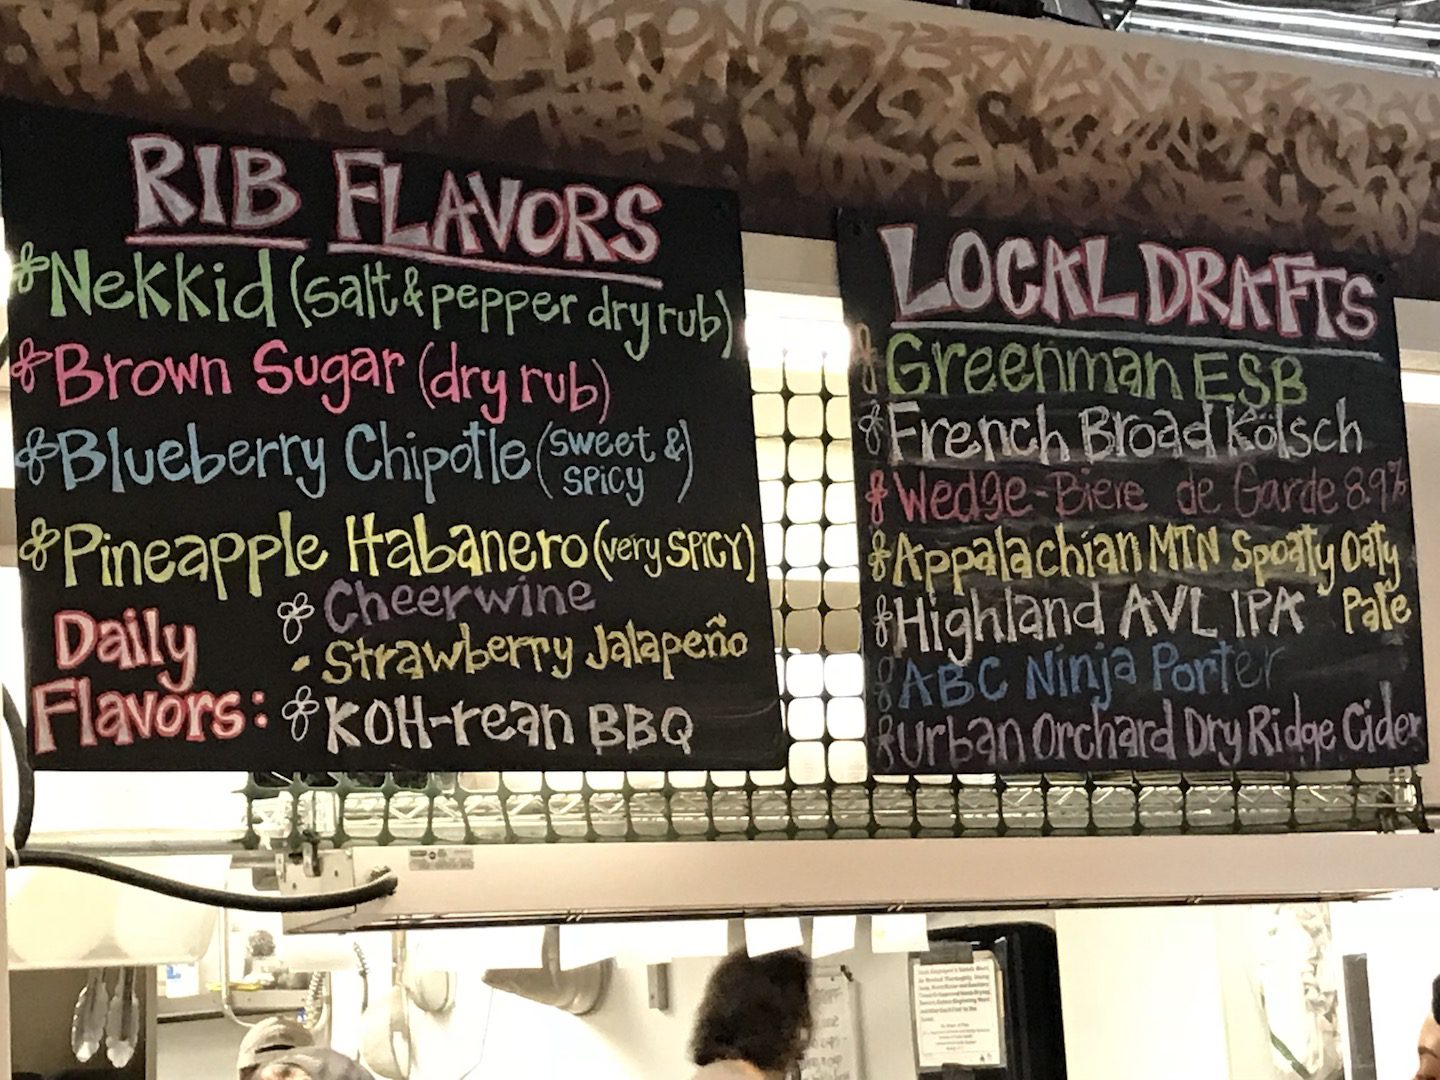 RIB FLAVORS
Nekkid (salt & pepper dry rub)
Brown Sugar (dry rub)
Blueberry Chipotle (sweet & spicy)
Pineapple Habanero (very spicy)
Daily Flavors:
Cheerwine
- Strawberry Jalapeño
KOH-rean BBQ
LOCAL DRAFTS
Greenman ESB
French Broad Kölsch
Wedge-Biere de Garde 8.9%
Appalachian MTN Spoaty Oaty Pale
Highland AVL IPA
ABC Ninja Porter
Urban Orchard Dry Ridge Cider